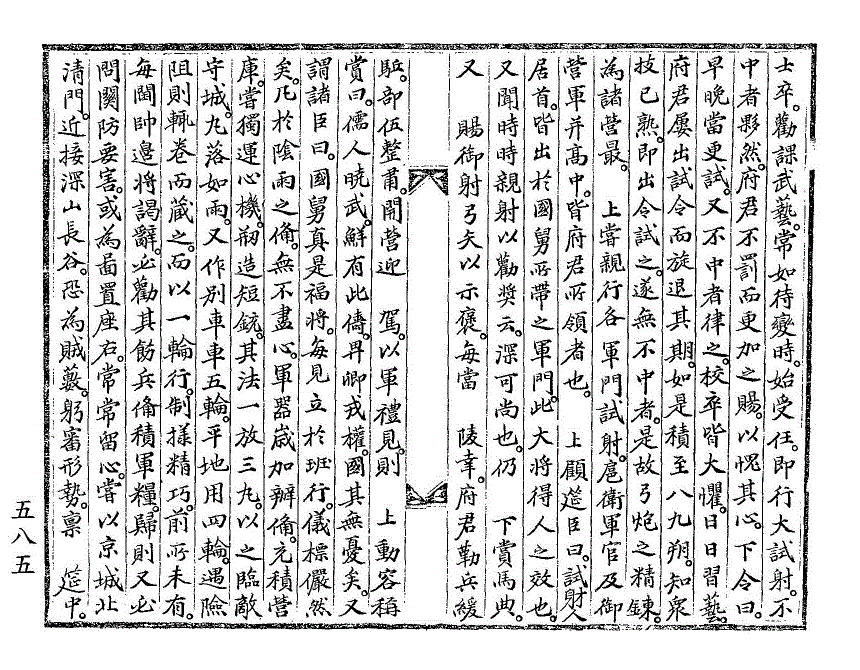 士卒。勸課武藝。常如待變時。始受任。即行大試射。不
中者夥然。府君不罰而更加之賜。以愧其心。下令曰。
早晚當更試。又不中者律之。校卒皆大懼。日日習藝。
府君屢出試令而旋退其期。如是積至八九朔。知衆
技已熟。即出令試之。遂無不中者。是故弓炮之精鍊。
為諸營最。 上嘗親行各軍門試射。扈衛軍官及御
營軍并高中。皆府君所領者也。 上顧筵臣曰。試射人
居首。皆出於國舅所帶之軍門。此大將得人之效也。
又聞時時親射以勸奬云。深可尚也。仍 下賞馬典。
又 賜御射弓矢以示褒。每當 陵幸。府君勒兵緩
駈。部伍整肅。開營迎 駕。以軍禮見。則 上動容稱
賞曰。儒人曉武。鮮有此儔。畀卿戎權。國其無憂矣。又
謂諸臣曰。國舅真是福將。每見立於班行。儀標儼然
矣。凡於陰雨之備。無不盡心。軍器歲加辦備。充積營
庫。嘗獨運心機。刱造短銃。其法一放三丸。以之臨敵
守城。丸落如雨。又作別車車五輪。平地用四輪。遇險
阻則輒卷而藏之。而以一輪行。制㨾精巧。前所未有。
每閫帥邊將謁辭。必勸其飭兵備積軍糧。歸則又必
問關防要害。或為啚置座右。常常留心。嘗以京城北
清門。近接深山長谷。恐為賊藪。躬審形勢。禀 筵中。
五八五